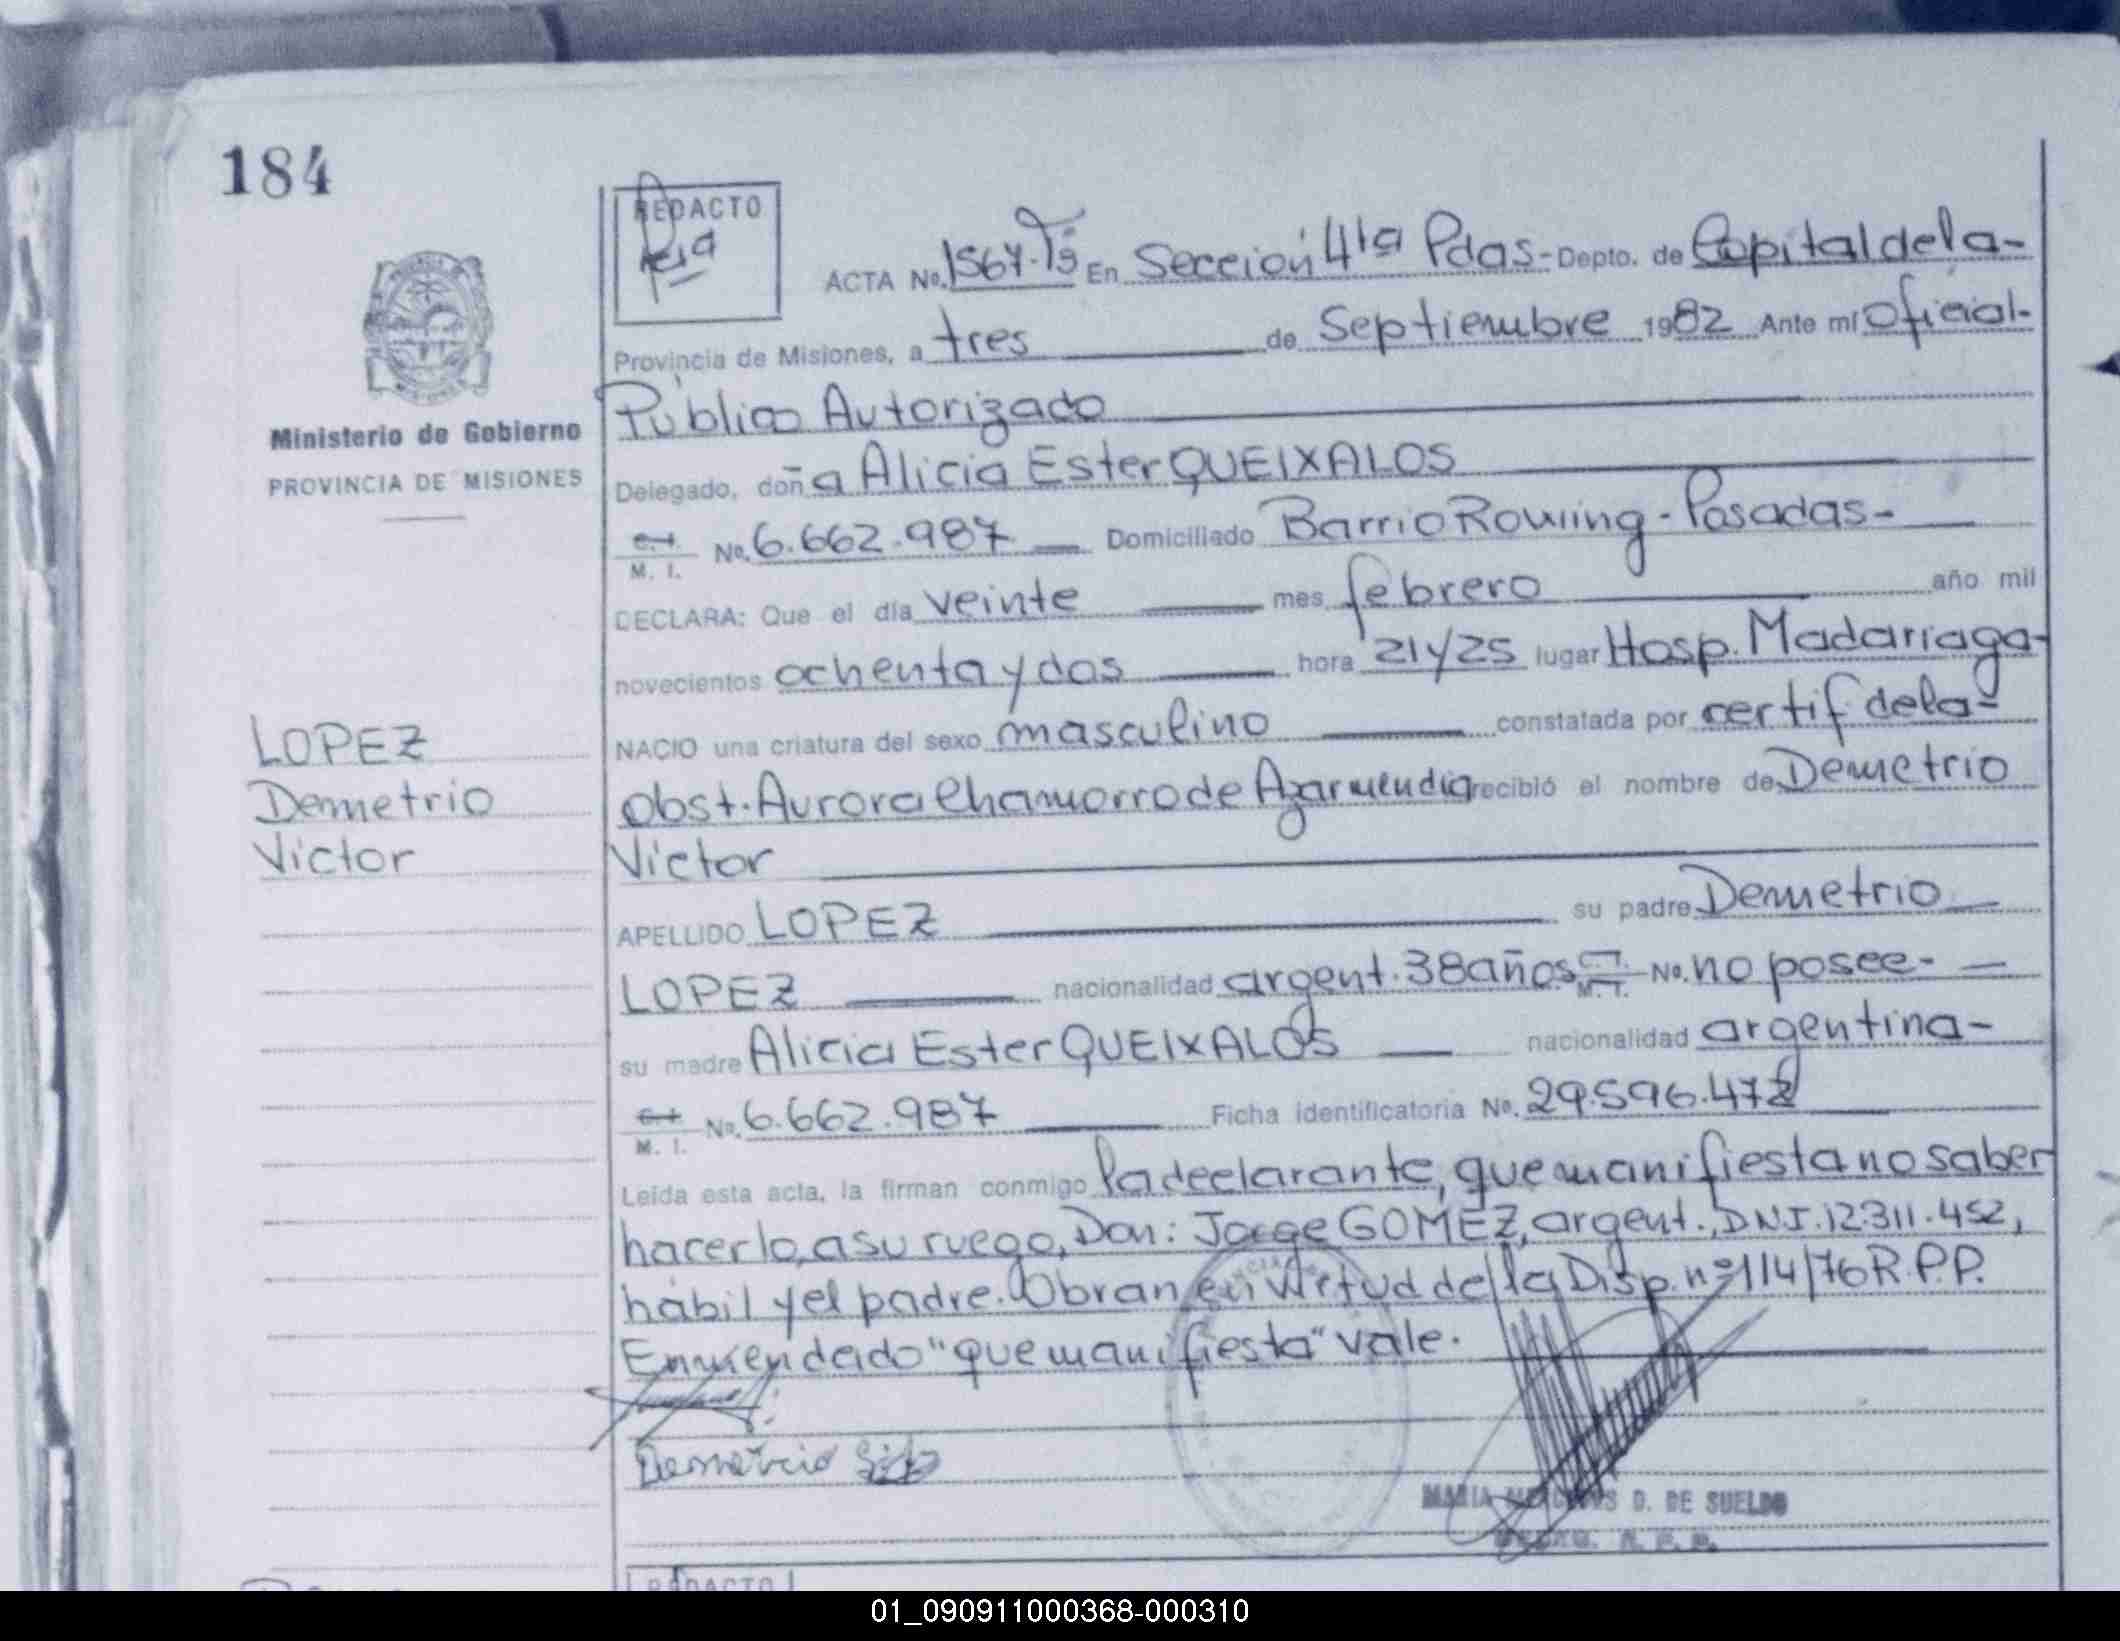 184
REDACTO
ACTA No. 1567. Tº En Sección 4ta Pdas- Depto. de Capital de la-
Provincia de Misiones, a tres de Septiembre 1982 Ante mí Oficial-
Público Autorizado
Ministerio de Gobierno
PROVINCIA DE MISIONES
Delegado, doña Alicia Ester QUEIXALOS
M. I. No. 6.662.987 Domiciliado Barrio Rowing - Posadas-
DECLARA: Que el día veinte mes febrero año mil
novecientos ochenta y dos hora 21y25 lugar Hosp. Madariaga-
NACIO una criatura del sexo masculino constatada por certif de la-
obst. Aurora Chamorro de Azarmendia recibió el nombre de Demetrio
Victor
LOPEZ
Demetrio
Victor
APELLIDO LOPEZ su padre Demetrio
LOPEZ nacionalidad argent. 38 años C. I. M. I. No. no posee-
su madre Alicia Ester QUEIXALOS nacionalidad argentina-
M. I. No. 6.662.987 Ficha identificatoria No. 29.596.472
Leida esta acta, la firman conmigo la declarante, que manifiesta no saber
hacerlo, a su ruego, Don: Jorge GOMEZ, argent., D.N.I. 12.311.452,
hábil y el padre. Obran en virtud de la Disp. nº 114/76 R.P.P.
Enmendado "que manifiesta" vale.
Demetrio
MARIA D. DE SUELDO
REDACTO
01_090911000368-000310